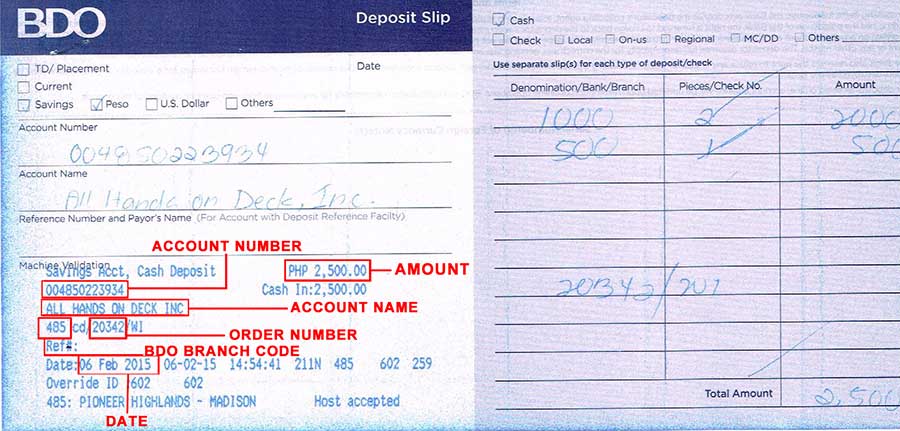 BDO
Deposit Slip
TD/ Placement
Date
Current
Savings Peso U.S. Dollar Others
Account Number
004850223934
Account Name
All Hands on Deck, Inc.
Reference Number and Payor's Name (For Account with Deposit Reference Facilty)
ACCOUNT NUMBER
Machine Validation
Savings Acct, Cash Deposit PHP 2,500.00 AMOUNT
004850223934 Cash In:2,500.00
ALL HANDS ON DECK INC ACCOUNT NAME
485 cd/20342/WI ORDER NUMBER
Ref#: BDO BRANCH CODE
Date:06 Feb 2015 06-02-15 14:54:41 211N 485 602 259
Override ID 602 602
485: PIONEER HIGHLANDS - MADISON Host accepted
DATE
Cash
Check Local On-us Regional MC/DD Others
Use separate slip(s) for each type of deposit/check
Denomination/Bank/Branch Pieces/Check No. Amount
1000 2 2000
500 1 500
20342/WI
Total Amount 2,500